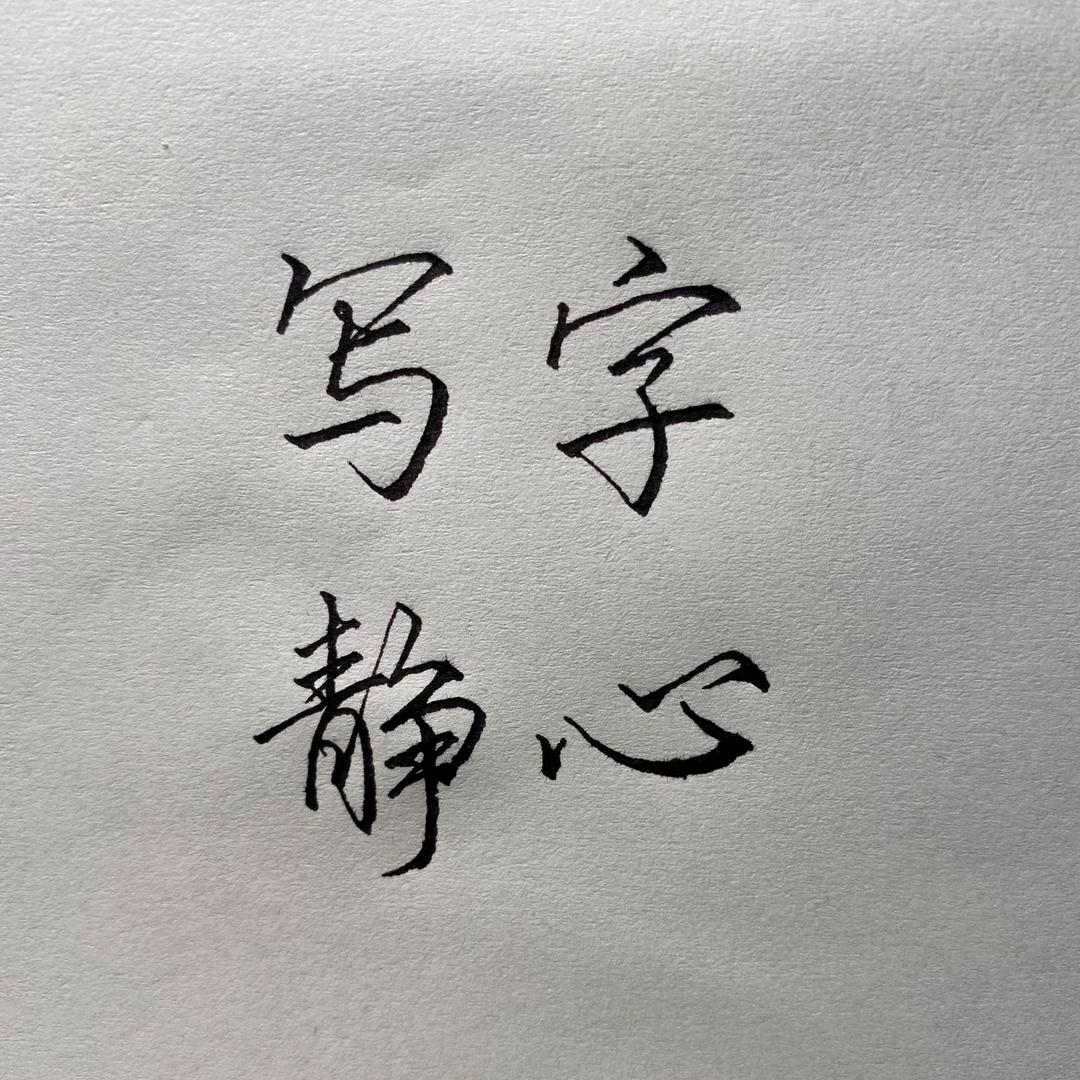 写字
静心